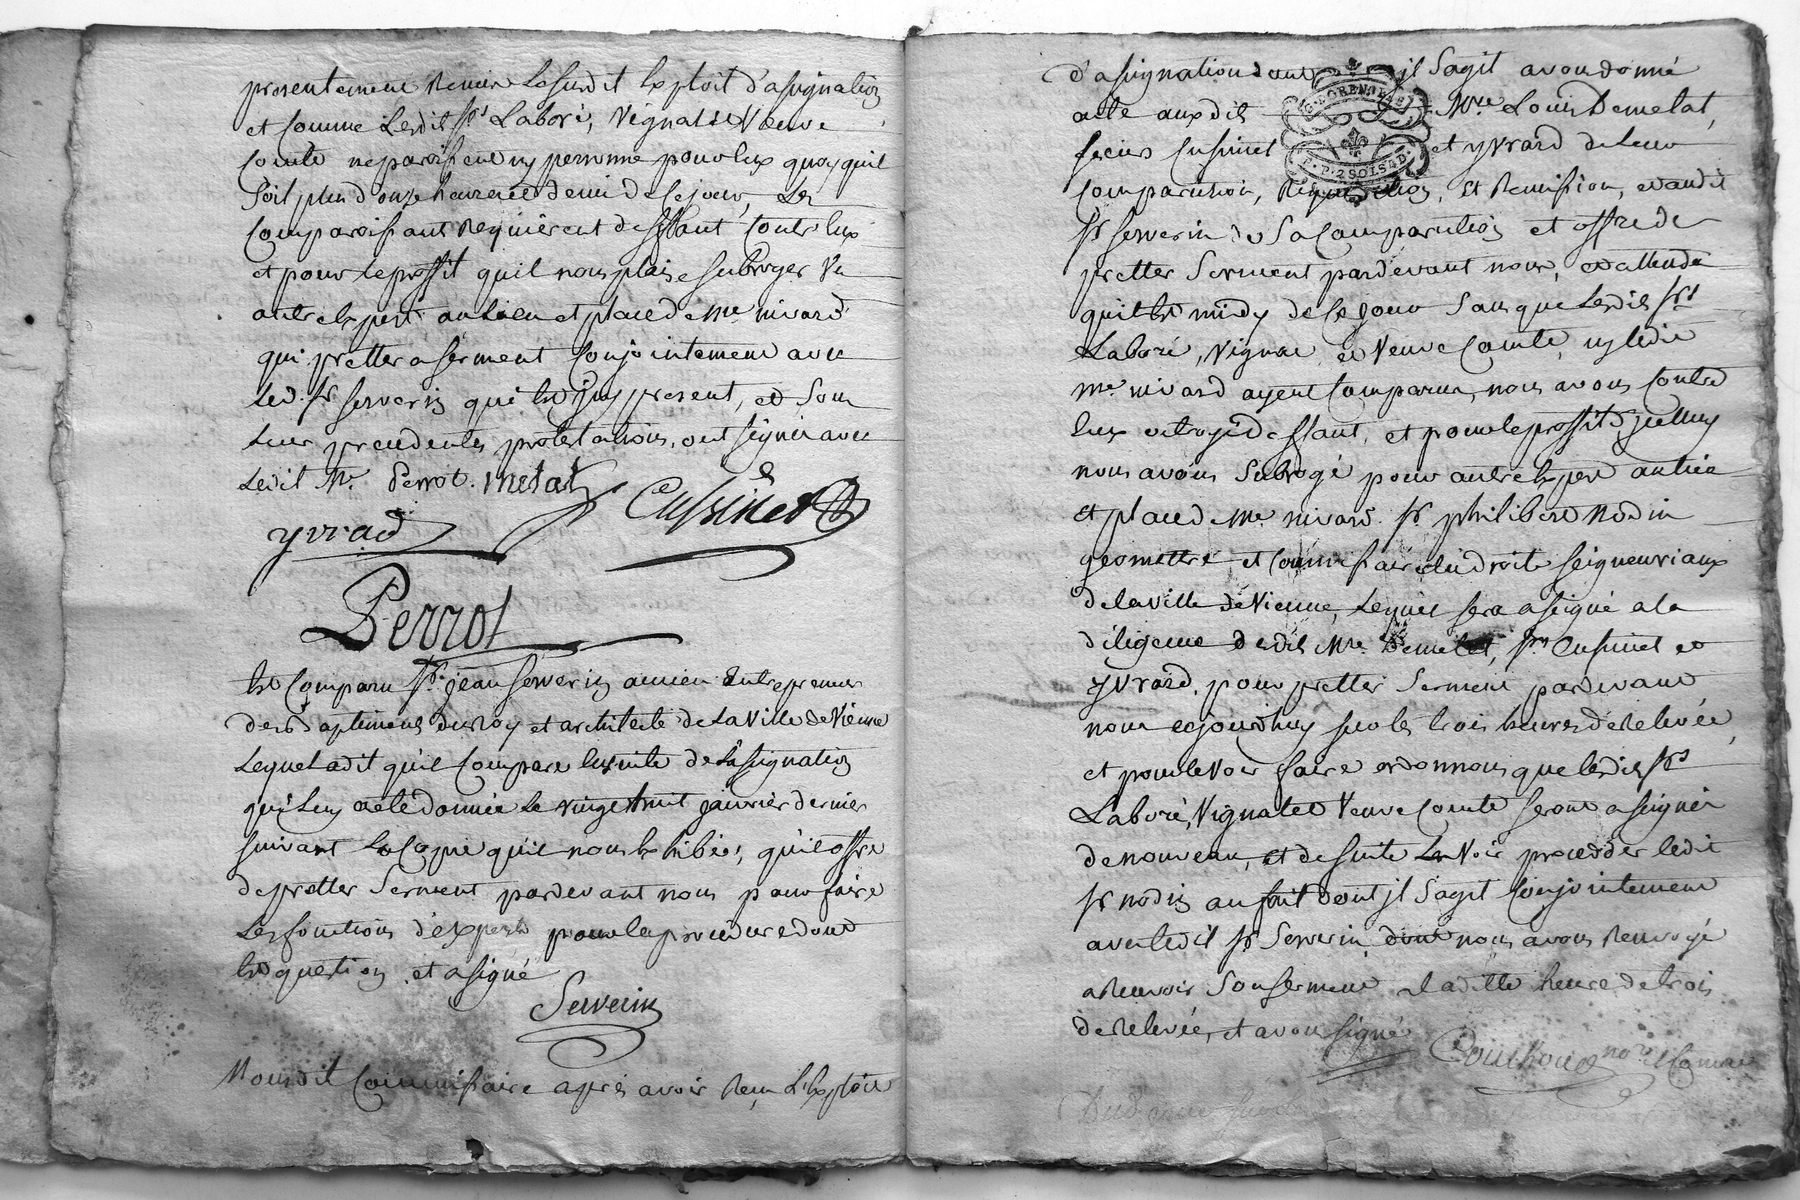 presentement Remis Le susdit Exploit d'assignation
et comme Lesdits srs Laboré, Vignat et Veuve
Comte ne paroissent ny personne pour Eux quoy quil
soit plus d'onze heures et demi de ce jour, Les
Comparoissants Requièrent deffaut Contr'Eux
et pour le proffit quil nous plaise subroger Un
autre Expert au Lieu et place de Me nivard
qui prettera serment Conjointement avec
Led. sr serverin qui Est icy present, et sous
Leur precedentes protestations, ont signé avec
Ledit Me. Perrot. metat Cussinet
yvrad
Perrot
Est Comparu sr. jean serverin ancien Entrepreneur
des Baptiments du Roy et architecte de La Ville de Vienne
Lequel a dit qu'il Compare Ensuite de L'assignation
qui Luy a été donnée Le vingt huit janvier dernier
suivant La Copie qu'il nous Exhibée, qu'il offre
de pretter Serment pardevant nous pour faire
Les fonctions d'Experts pour la procedure dont
Est question, et a signé
Serverin
Nousdit Commissaire après avoir Reçu L'Exploit
d'assignation dont il S'agit avons donné
acte auxdits Mre. Louis Demetat,
sieurs Cussinet et yvrard de Leur
G. GRENOBLE
P. P. 2 SOLS 4 D.
Comparution, Requisition, Et Remission, et audit
sr serverin de Sa Comparution et offre de
pretter Serment pardevant nous, et attendu
qu'il Est midy de Ce jour Sans que Lesdits srs
Laboré, Vignat et Veuve Comte, ny Ledit
me nivard ayent Comparus, nous avons Contre
Eux octroyé deffaut, et pour le proffit d'jcelluy
nous avons Subrogé pour autre Expert au lieu
et place de Me nivard. sr philibert Nodin
géomettre et Commissaire des droits seigneuriaux
de la ville de Vienne, Lequel sera assigné a la
diligence desdits Mre. Demetat, srs Cussinet et
yvrard, pour pretter Serment pardevant
nous cejourd'huy sur les trois heures de Relevée,
et pour le voir faire ordonnons que lesdits srs
Laboré, Vignat et Veuve Comte seront assignés
de nouveau, et de suite Le Voir procedder ledit
sr nodin au fait dont il s'agit Conjointement
avec ledit sr Serverin dont nous avons Renvoyé
a Recevoir Son serment a laditte heure de trois
de Relevée, et avons signé